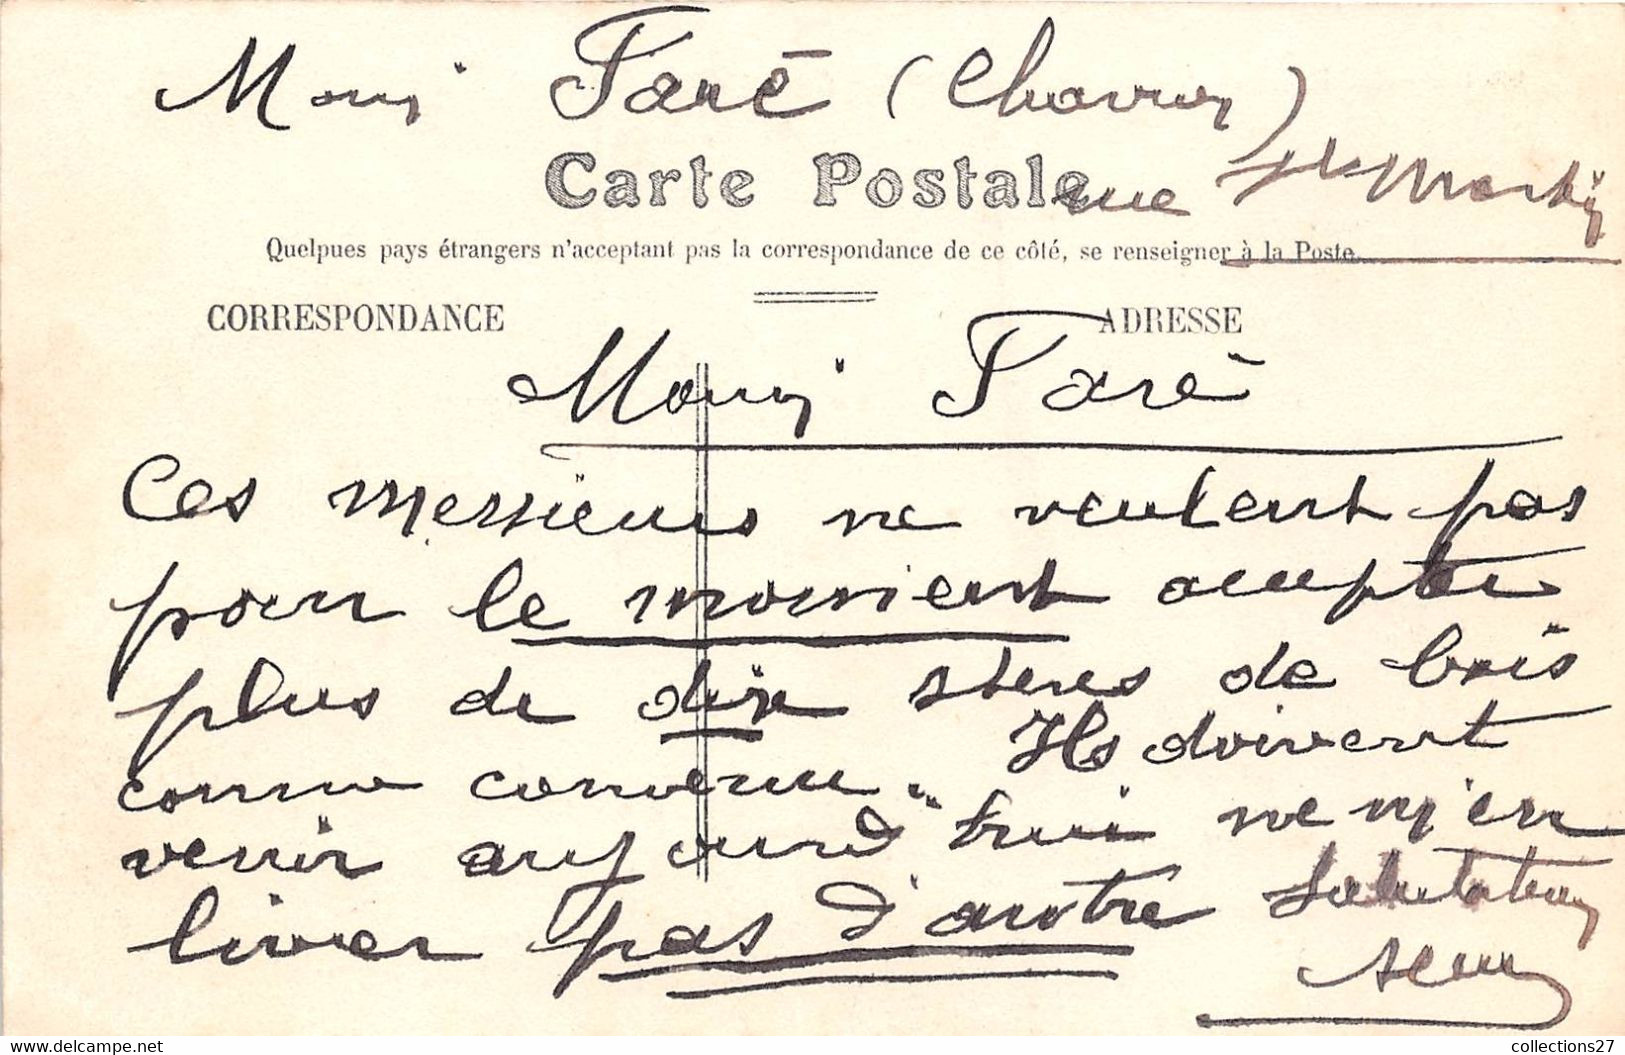 Monsr Faré (
Carte Postale rue St Martin
Quelpues pays étrangers n'acceptant pas la correspondance de ce côté, se renseigner à la Poste.
CORRESPONDANCE ADRESSE
Monsr Faré
Ces messieurs ne veulent pas
pour le moment accepter
plus de dix steres de bois
comme convenu. Ils doivent
venir aujourd'hui ne m'en
livrer pas d'autre Salutations
delcampe.net
collections27